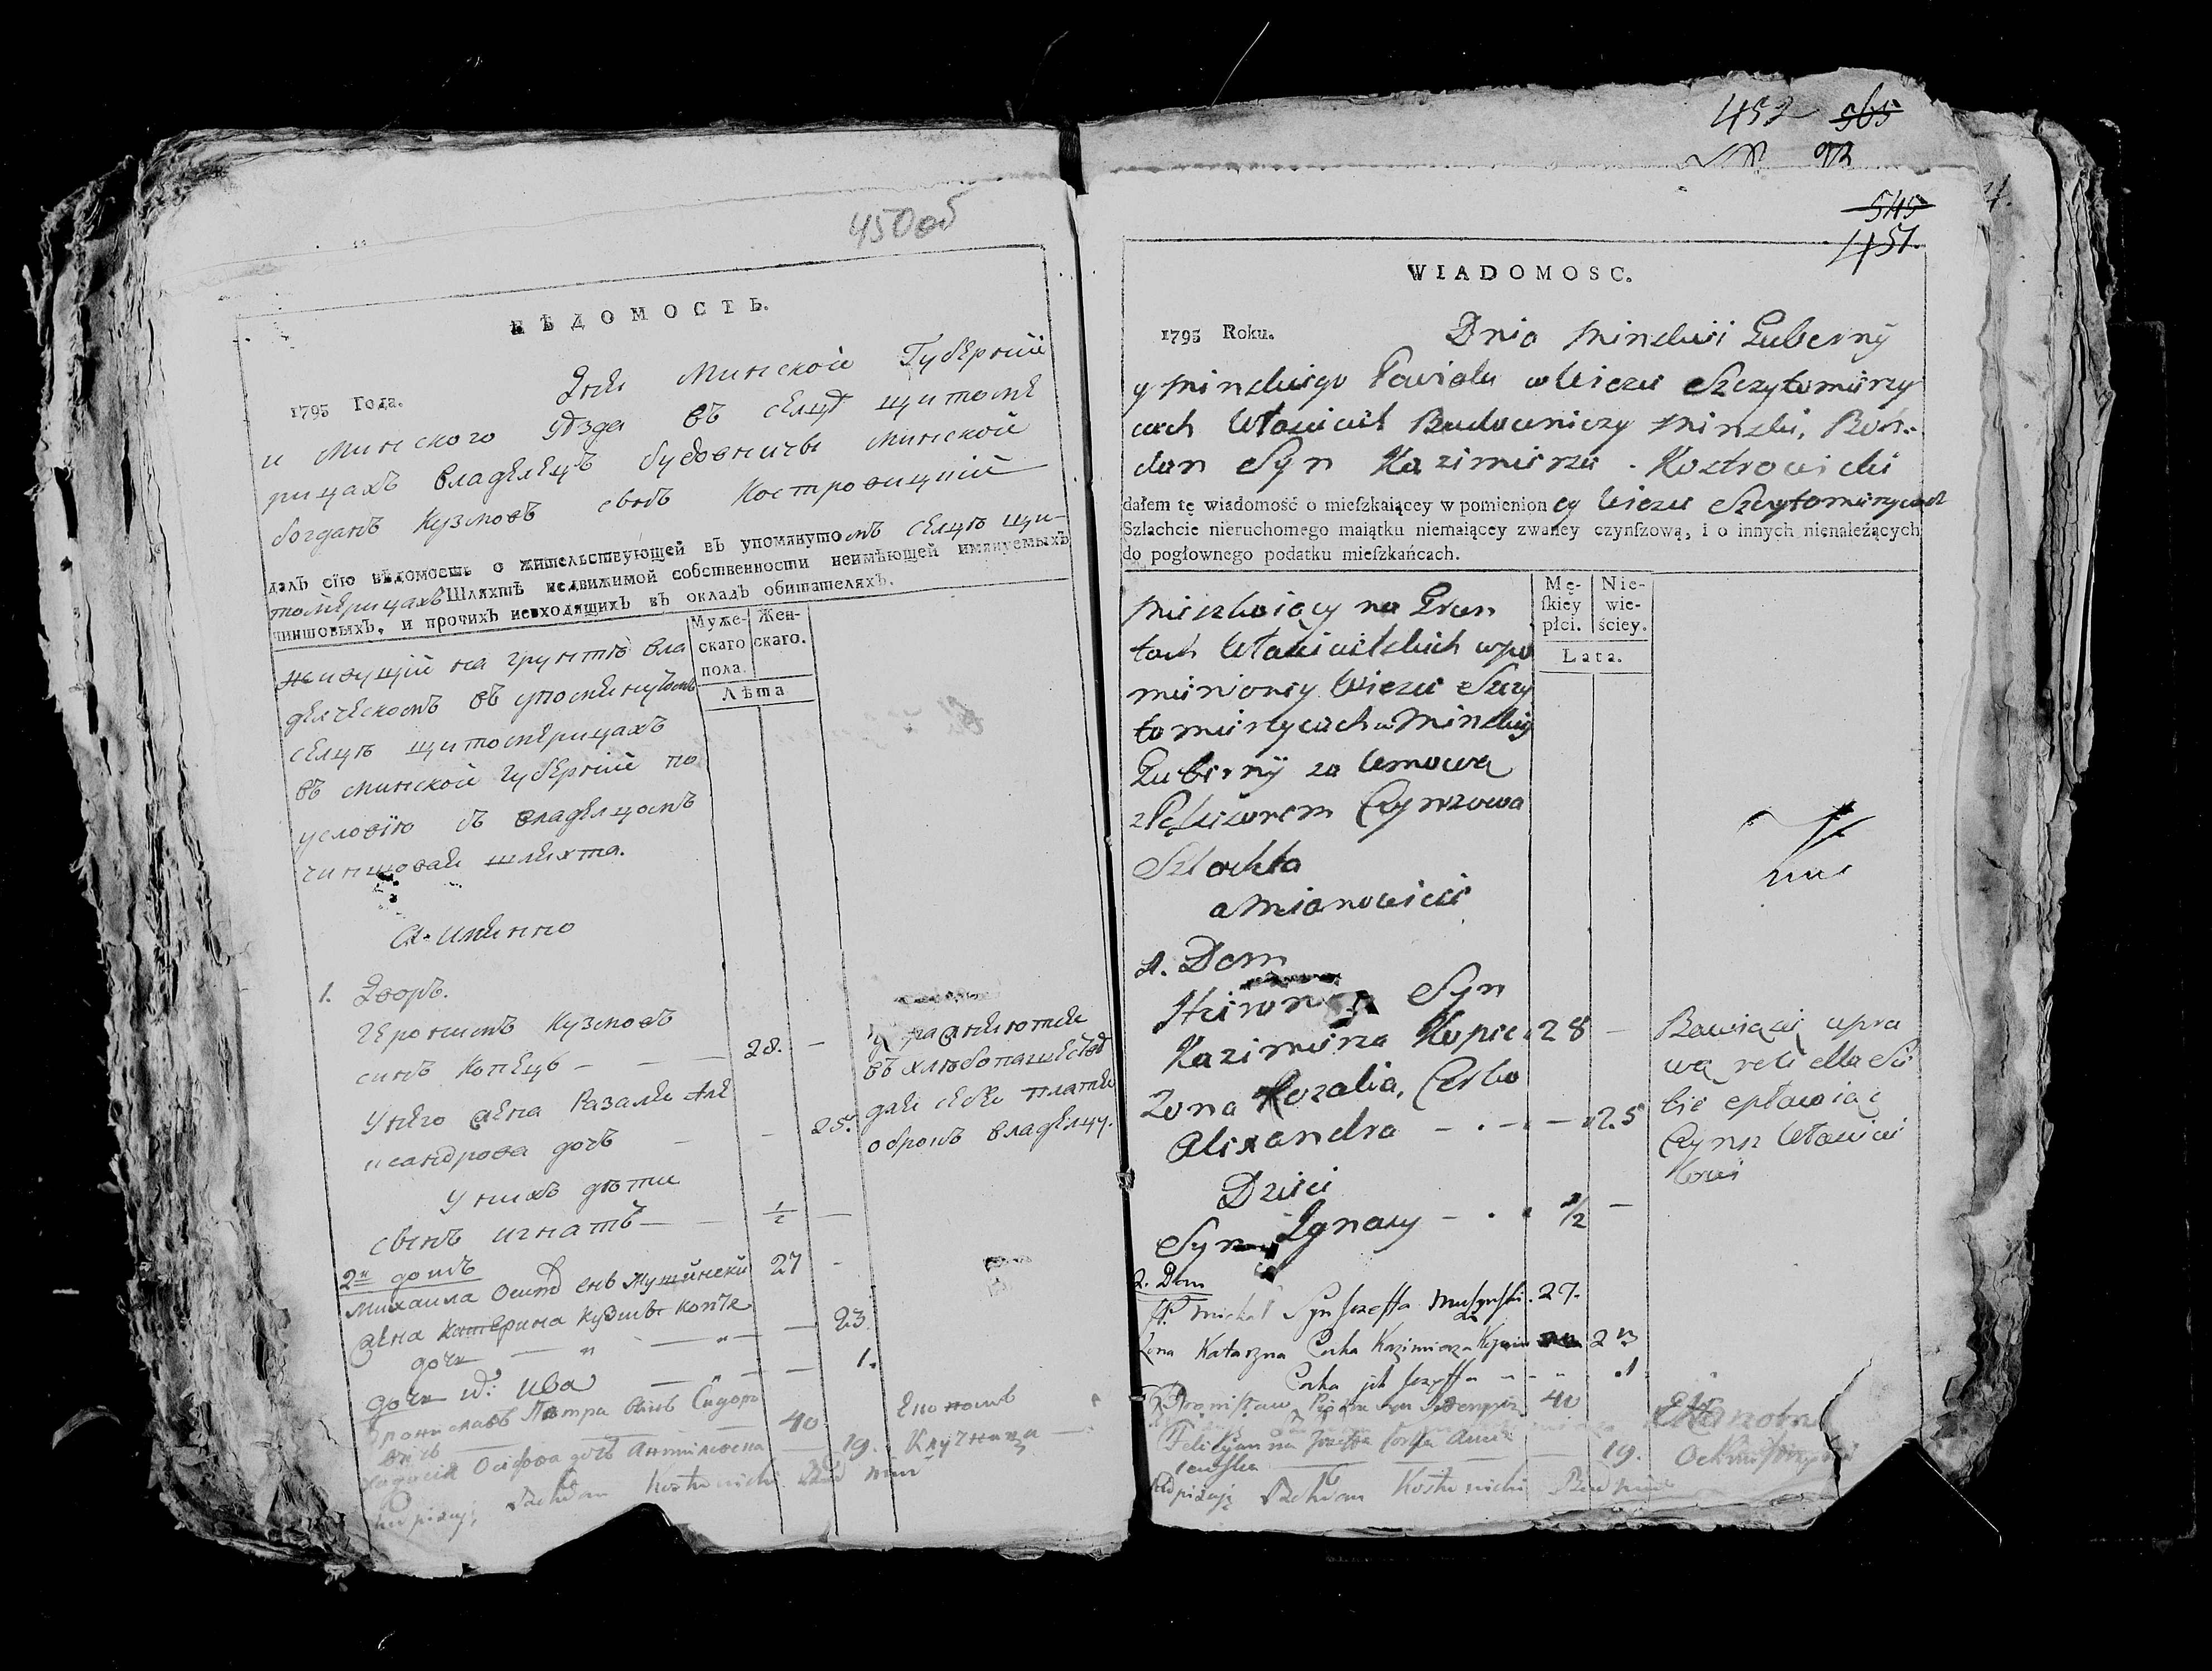 450 об
ВѢДОМОСТЬ.
1795 Года. Дня Минской Губерній
и Минского уѣзда въ селцѣ щитоме
рицахъ владелецъ будовничы минской
богданъ Кузмовъ сынъ Костровицкій
далъ сїю вѣдомость о жительствующей въ упомянутомъ селцѣ щи-
томерицахъ Шляхтѣ недвижимой собственности неимѣющей имянуемыхъ
чиншовыхъ, и прочихъ невходящихъ въ окладъ обитателяхъ.
Муже-скаго пола. Жен-скаго.
Лѣта
живущій на грунтѣ вла
делческомъ въ упомянутомъ
селцѣ щитомерицахъ
въ минской губерній по
условїю съ владелцомъ
чиншовая шляхта.
А имянно
1. Дворъ.
Геронимъ Кузмовъ
синъ Копець — — 28. —
упражняютця
въ хлебопашествѣ
для себе платя
оброкъ владелцу.
У него жена Разаля Але
ксандрова дочь — — 25.
У нихъ дѣти
сынъ игнатъ — — 1/2 —
2й домъ
Михаила Осипо 27 -
жена Катерина
дочь — " — " — 23.
1.
40 Економъ
19. Ключница
Bohdan Kostrowicki Bud Min
452 565
92
545
451.
WIADOMOSC.
1795 Roku. Dnia Minskiei Guberny
y Minskiego Powiatu w Wiezce Szczytomierzy
cach Własciciel Budowniczy Minski, Boh-
dan Syn Kazimierza Kostrowicki
dałem tę wiadomość o mieſzkaiącey w pomienioney Wiezce Szczytomierzycach
Szlachcie nieruchomego maiątku niemaiącey zwaney czynſzową, i o innych nienależących
do pogłownego podatku mieſzkańcach.
Mę-ſkiey płci. Nie-wie-ściey.
Lata.
Mieszkaiący na Grun
tach Włascicielskich w po
mienioney Wiezce Szczy
tomierzycach w Minskiey
Guberny za Umową
z Czynszowa
Szlachta
a Mianowicie
1. Dom
Syn
Kazimierza Kopiec 28 —
Bawiący upra
wą roli dla Sie
bie opłacaiąc
Czynsz Własciciel
lowi
Zona Rozalia, Corka
Alexandra — . — — 25
Dzieci
Syn Ignacy — . . 1/2 —
2. Dom
Michał Syn Jozeffa 27.
Zona Katarzyna Corka Kazimierza 23
Corka 1
40 Ekonom
Jozeffa Corka
19. Ochmistrzyni
Podpisuię Bohdan Kostrowicki Bud Min